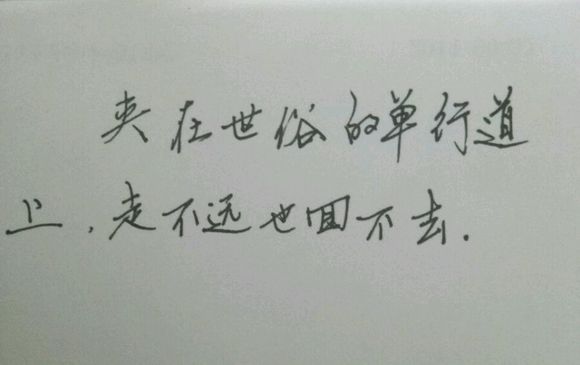 夹在世俗的单行道
上,走不远也回不去.